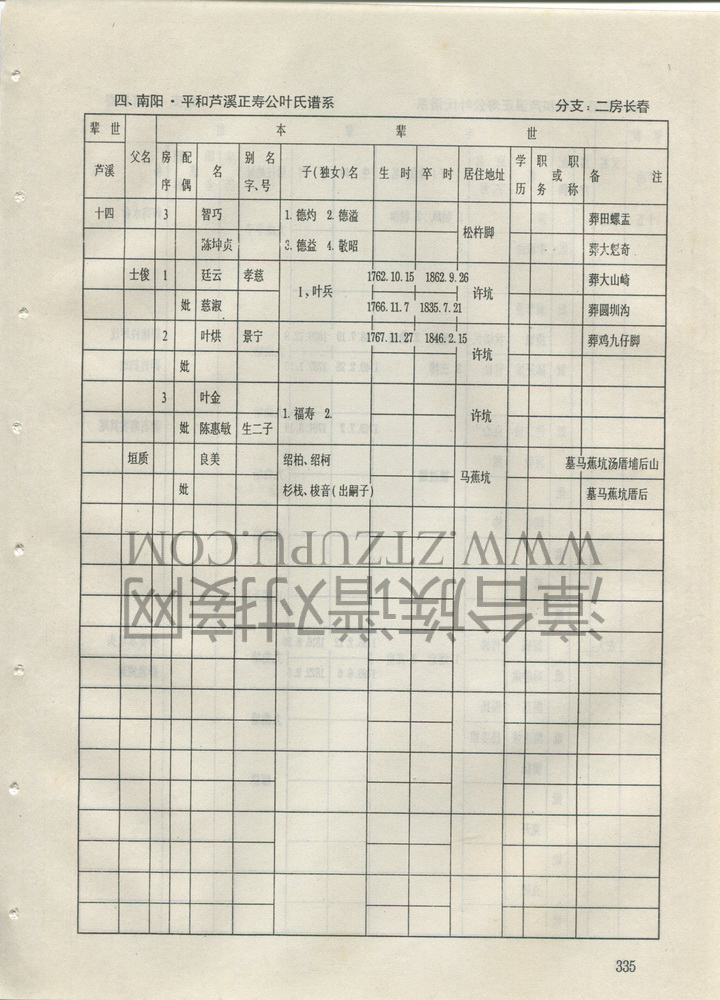 四、南阳·平和芦溪正寿公叶氏谱系 分支：二房长春
辈世 本辈世
芦溪 父名 房序 配偶 名 别名字、号 子(独女)名 生时 卒时 居住地址 学历 职务或职称 备注
十四 3 智巧 1.德灼 2.德溢 松柞脚 葬田螺盂
陈坤贞 3.德益 4.敬昭 葬大彪奇
士俊 1 廷云 孝慈 1、叶兵 1762.10.15 1862.9.26 许坑 葬大山崎
妣 慈淑 1766.11.7 1835.7.21 葬圆圳沟
2 叶烘 景宁 1767.11.27 1846.2.15 许坑 葬鸡九仔脚
妣
3 叶金 1.福寿 2. 许坑
妣 陈惠敏 生二子
垣质 良美 绍柏、绍柯 马蕉坑 墓马蕉坑汤厝埔后山
妣 杉栈、梭音(出嗣子) 墓马蕉坑厝后
WWW.ZTZUPU.COM
漳台族谱对接网
335